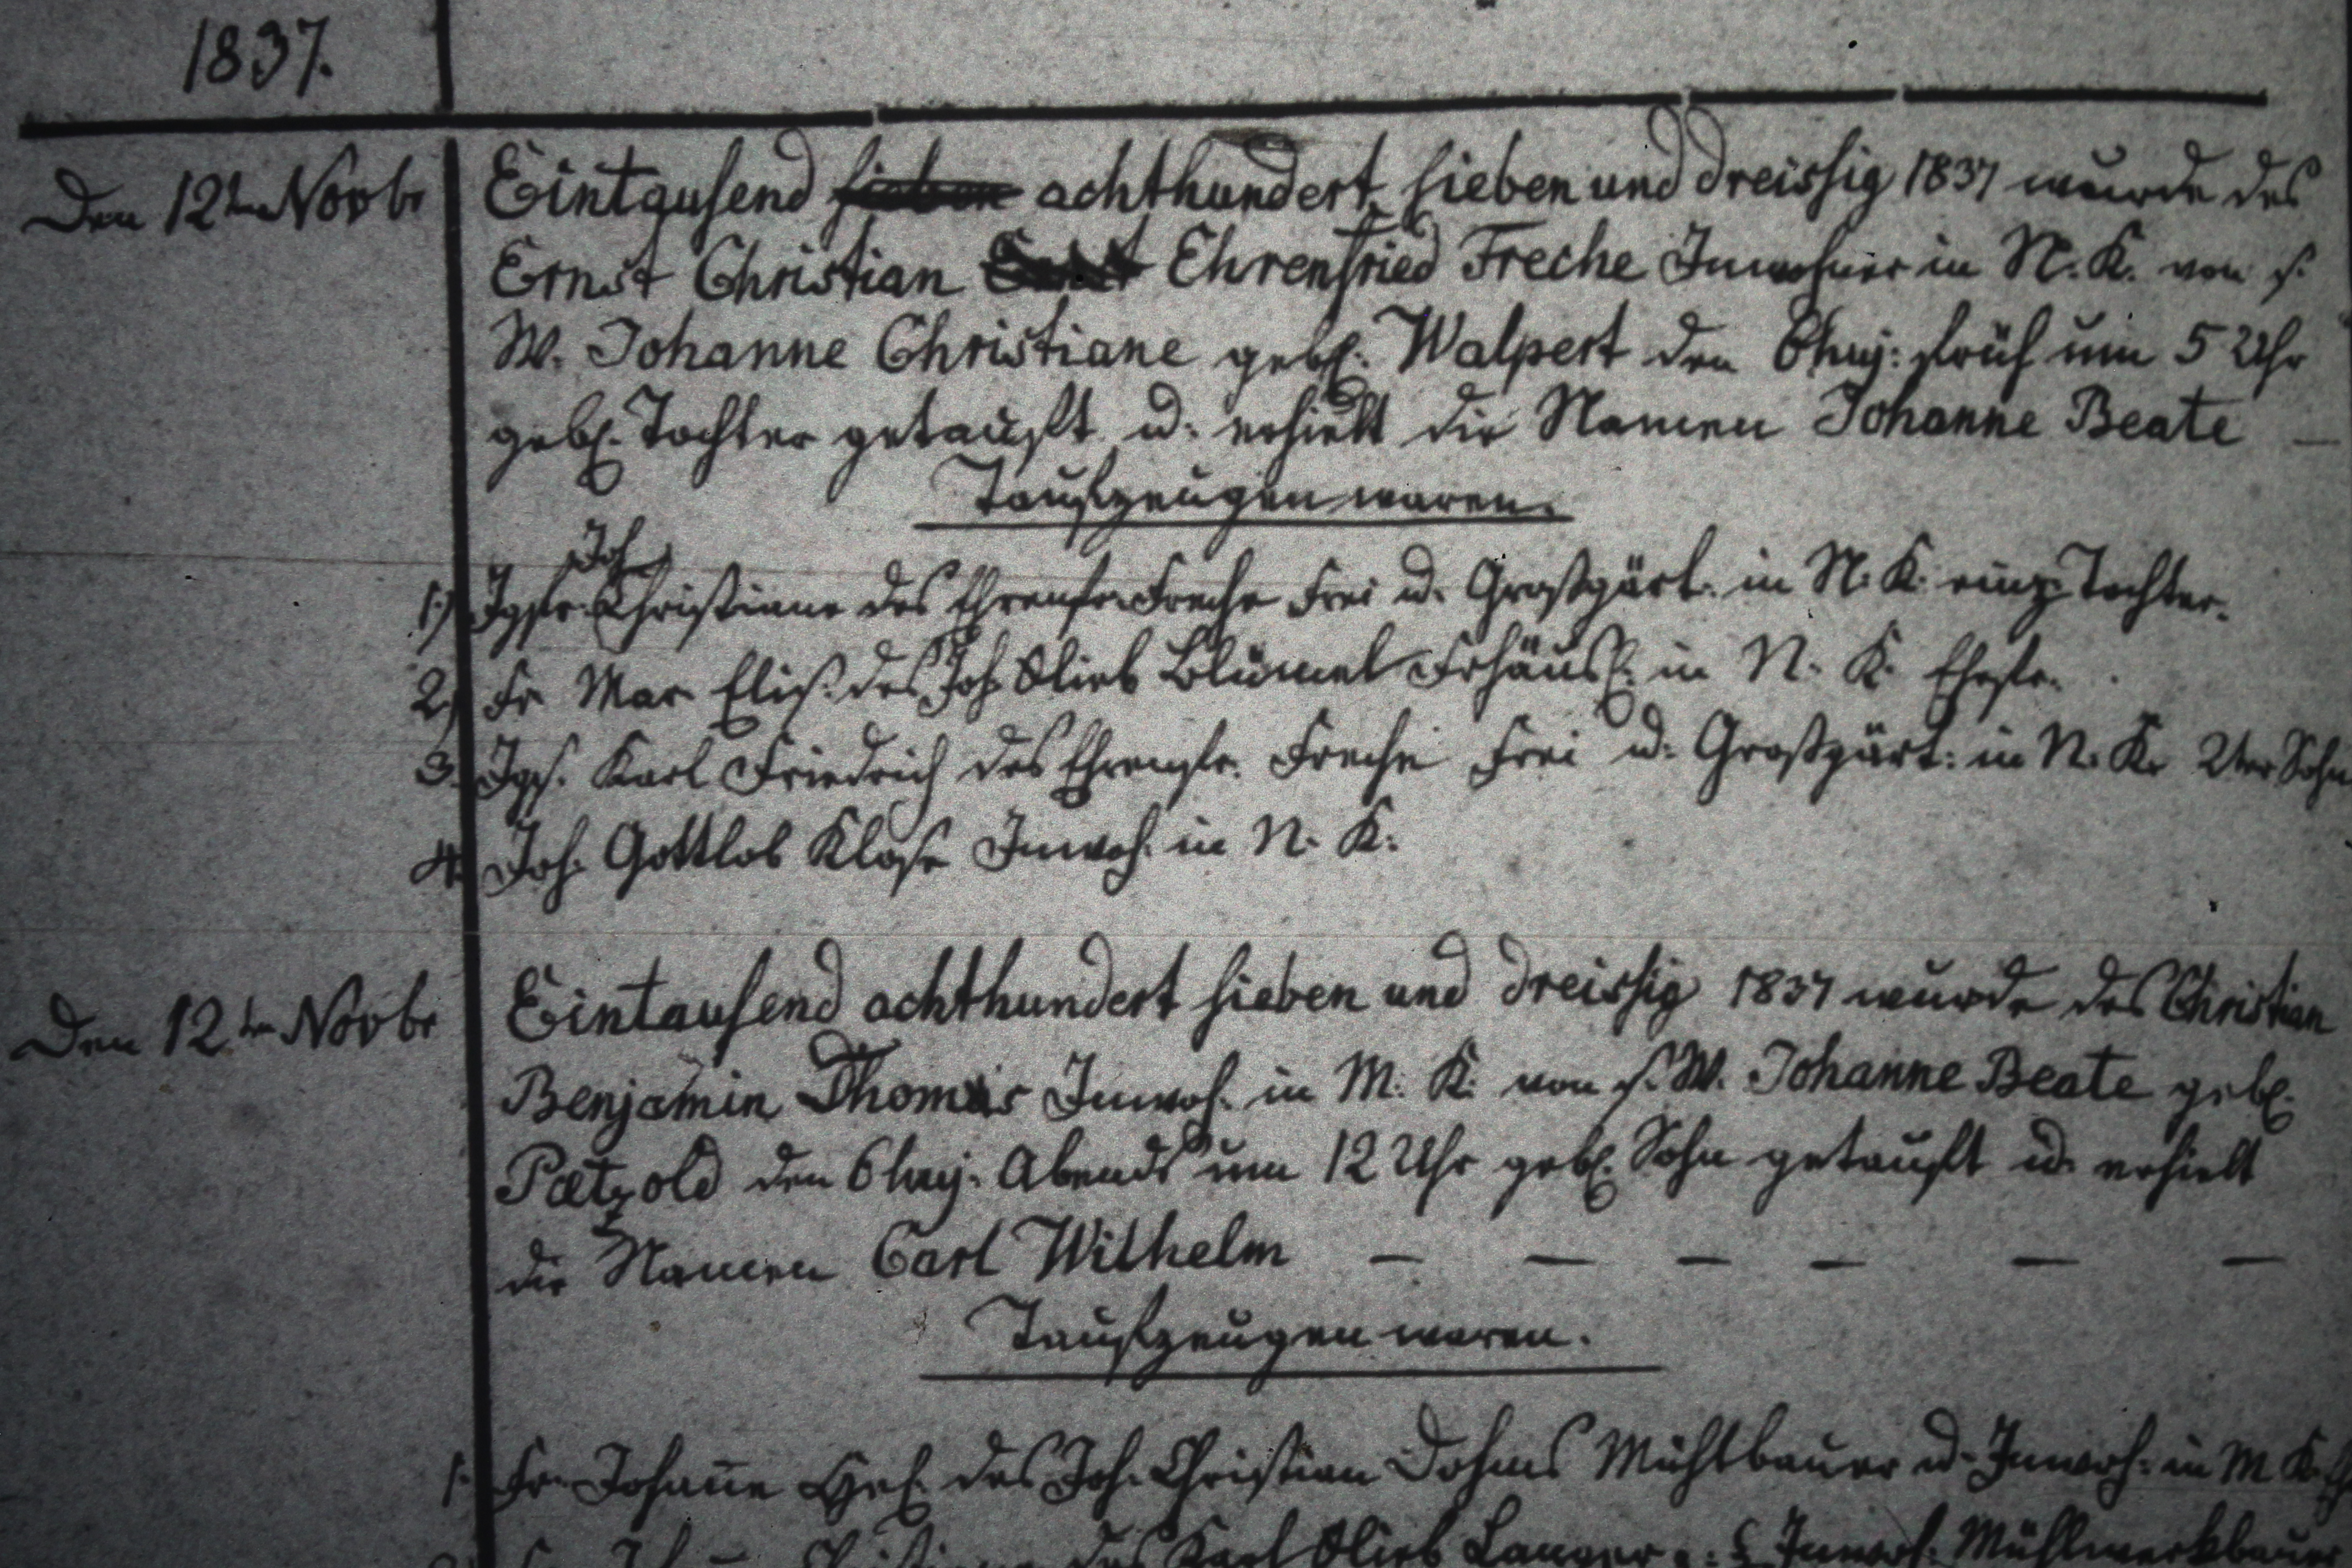 1837.
Den 12ten Novbr Eintausend sieben achthundert sieben und dreissig 1837 wurde des
Ernst Christian Ehrenfried Freche Inwohner in N. K. von s.
W. Johanne Christiane geb. Walpert den 6 huj: früh um 5 Uhr
geb. Tochter getauft u. erhielt die Namen Johanne Beate —
Taufzeugen waren.
Joh
1.) Jgfr. Christiane des Ehrenfr. Freche Frei u. Großgärt. in N. K. einz. Tochter.
2.) Fr Mar Elis. des Joh. Glieb Blümel Frhäusl. in N. K. Ehefr.
3. Jgs. Karl Friedrich des Ehrenfr. Freche Frei u. Großgärt: in N. K. 2ter Sohn
4. Joh. Gottlob Klose Inwoh. in N. K.
Den 12ten Novbr Eintausend achthundert sieben und dreissig 1837 wurde des Christian
Benjamin Thomas Inwoh. in M. K. von s. W. Johanne Beate geb.
Pætzold den 6 huj. Abends um 12 Uhr geb. Sohn getauft u. erhielt
die Namen Carl Wilhelm — — — — — —
Taufzeugen waren.
1. Fr. Johañe des Joh. Christian Dohms Mühlbauer u. Inwoh: in M K.
des Karl Glieb Langer Inwoh.